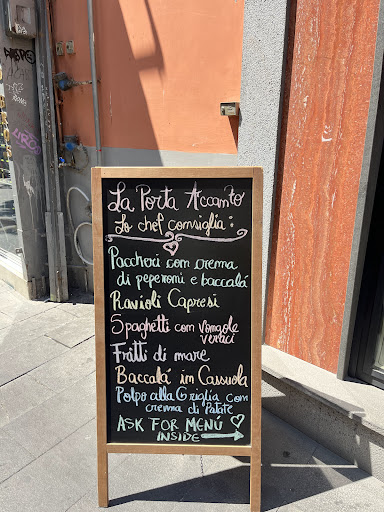 La Porta Accanto
Lo chef consiglia:
Paccheri com crema
di peperomi e baccalá
Ravioli Capresi
Spaghetti com vomgole
veraci
Fritti di mare
Baccalá im Cassuola
Polpo alla Griglia com
crema di Patate
ASK FOR MENÚ
INSIDE